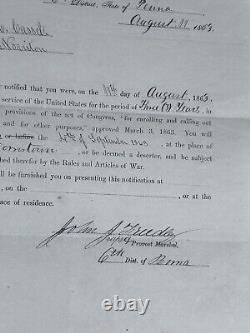 District, State of Penna
August 11 1863.
Cassel
Norriton
notified that you were, on the 11th day of August, 1863,
service of the United States for the period of Three (3) Years,
provisions of the act of Congress, "for enrolling and calling out
and for other purposes," approved March 3, 1863. You
or before the 4th of September 1863, at the place of
or be deemed a deserter, and be subject
scribed therefor by the Rules and Articles of War.
will be furnished you on presenting this notification at
, on the , or at the
ace of residence.
John J Freedley
Provost Marshal,
6th Dist. of Penna